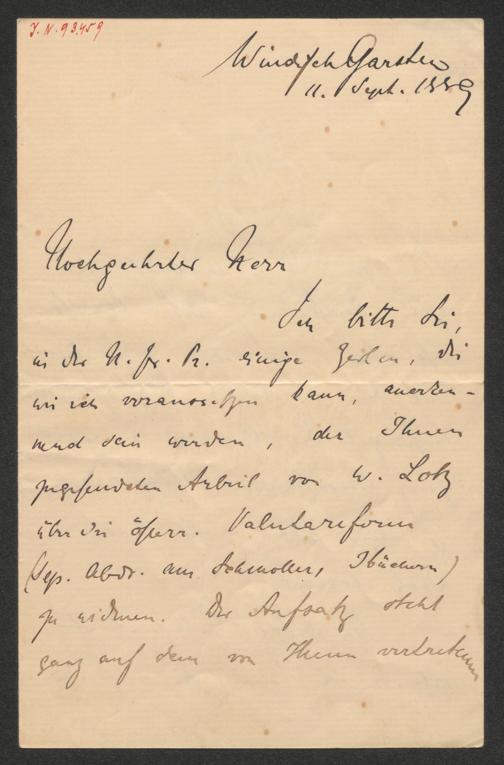 J. N. 93459
Windischgarsten
11. Sept. 1889
Hochgeehrter Herr
Ich bitte Sie,
in der N. fr. Pr. einige Zeilen, die
wie ich voraussetzen kann, anerken-
nend sein werden, der Ihnen
zugesendeten Arbeit von W. Lotz
über die österr. Valutareform
(Sep. Abdr. aus Schmollers Jbüchern)
zu widmen. Der Aufsatz steht
ganz auf dem von Ihnen vertretenen